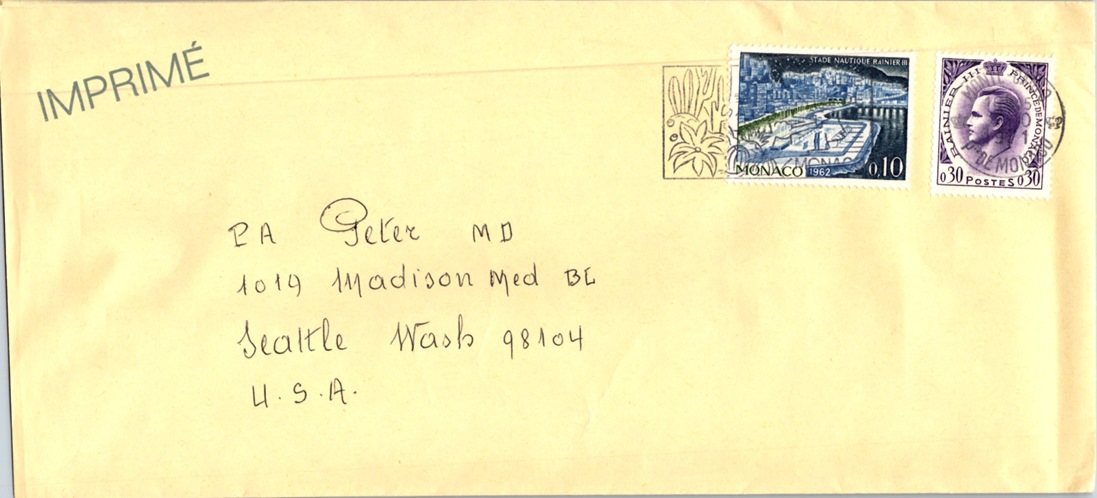 IMPRIMÉ
STADE NAUTIQUE RAINIER III
MONACO 1962 0.10
RAINIER III PRINCE DE MONACO
0.30 POSTES 0.30
PTÉ DE MONACO
P A Peter MD
1019 Madison Med BL
Seattle Wash 98104
U.S.A.